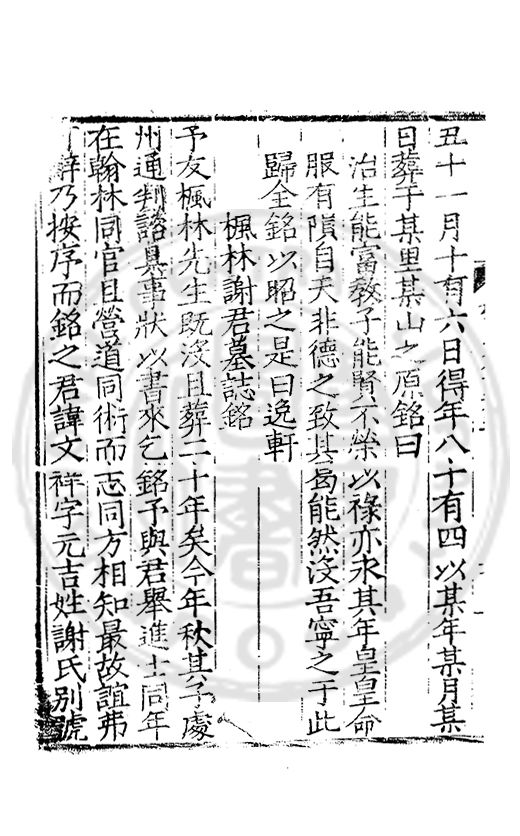 丑十一月十有六日得年八十有四以某年某月某
日葬于某里某山之原銘曰
治生能富敎子能賢不榮以祿亦永其年皇皇命
服有隕自天非德之致其曷能然沒吾寧之于此
歸全銘以昭之是曰逸軒
楓林謝君墓誌銘
予友楓林先生旣沒且葬二十年矣今年秋其子處
州通判諮具事狀以書來乞銘予與君舉進士同年
在翰林同官且營道同術而志同方相知最故誼弗
辭乃按序而銘之君諱文祥字元吉姓謝氏別號